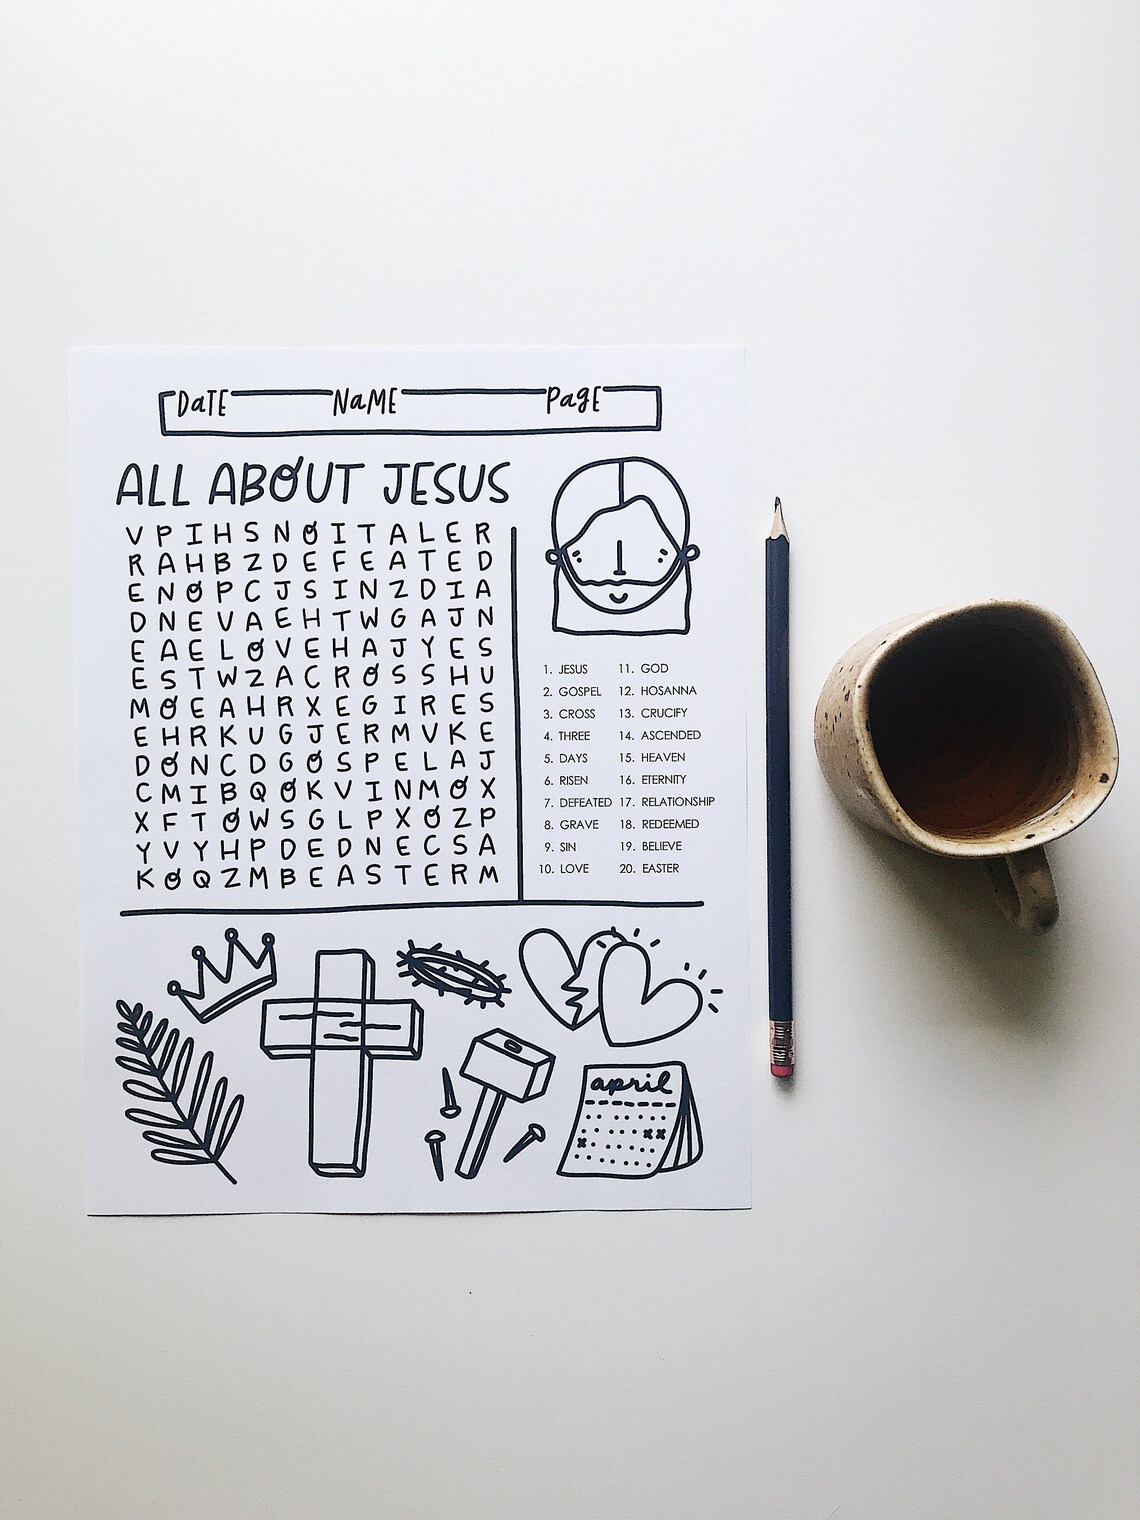 DaTE NaME Page
ALL ABOUT JESUS
V P I H S N O I T A L E R
R A H B Z D E F E A T E D
E N O P C J S I N Z D I A
D N E V A E H T W G A J N
E A E L O V E H A J Y E S
E S T W Z A C R O S S H U
M O E A H R X E G I R E S
E H R K U G J E R M V K E
D O N C D G O S P E L A J
C M I B Q O K V I N M O X
X F T O W S G L P X O Z P
Y V Y H P D E D N E C S A
K O Q Z M B E A S T E R M
1. JESUS
2. GOSPEL
3. CROSS
4. THREE
5. DAYS
6. RISEN
7. DEFEATED
8. GRAVE
9. SIN
10. LOVE
11. GOD
12. HOSANNA
13. CRUCIFY
14. ASCENDED
15. HEAVEN
16. ETERNITY
17. RELATIONSHIP
18. REDEEMED
19. BELIEVE
20. EASTER
april